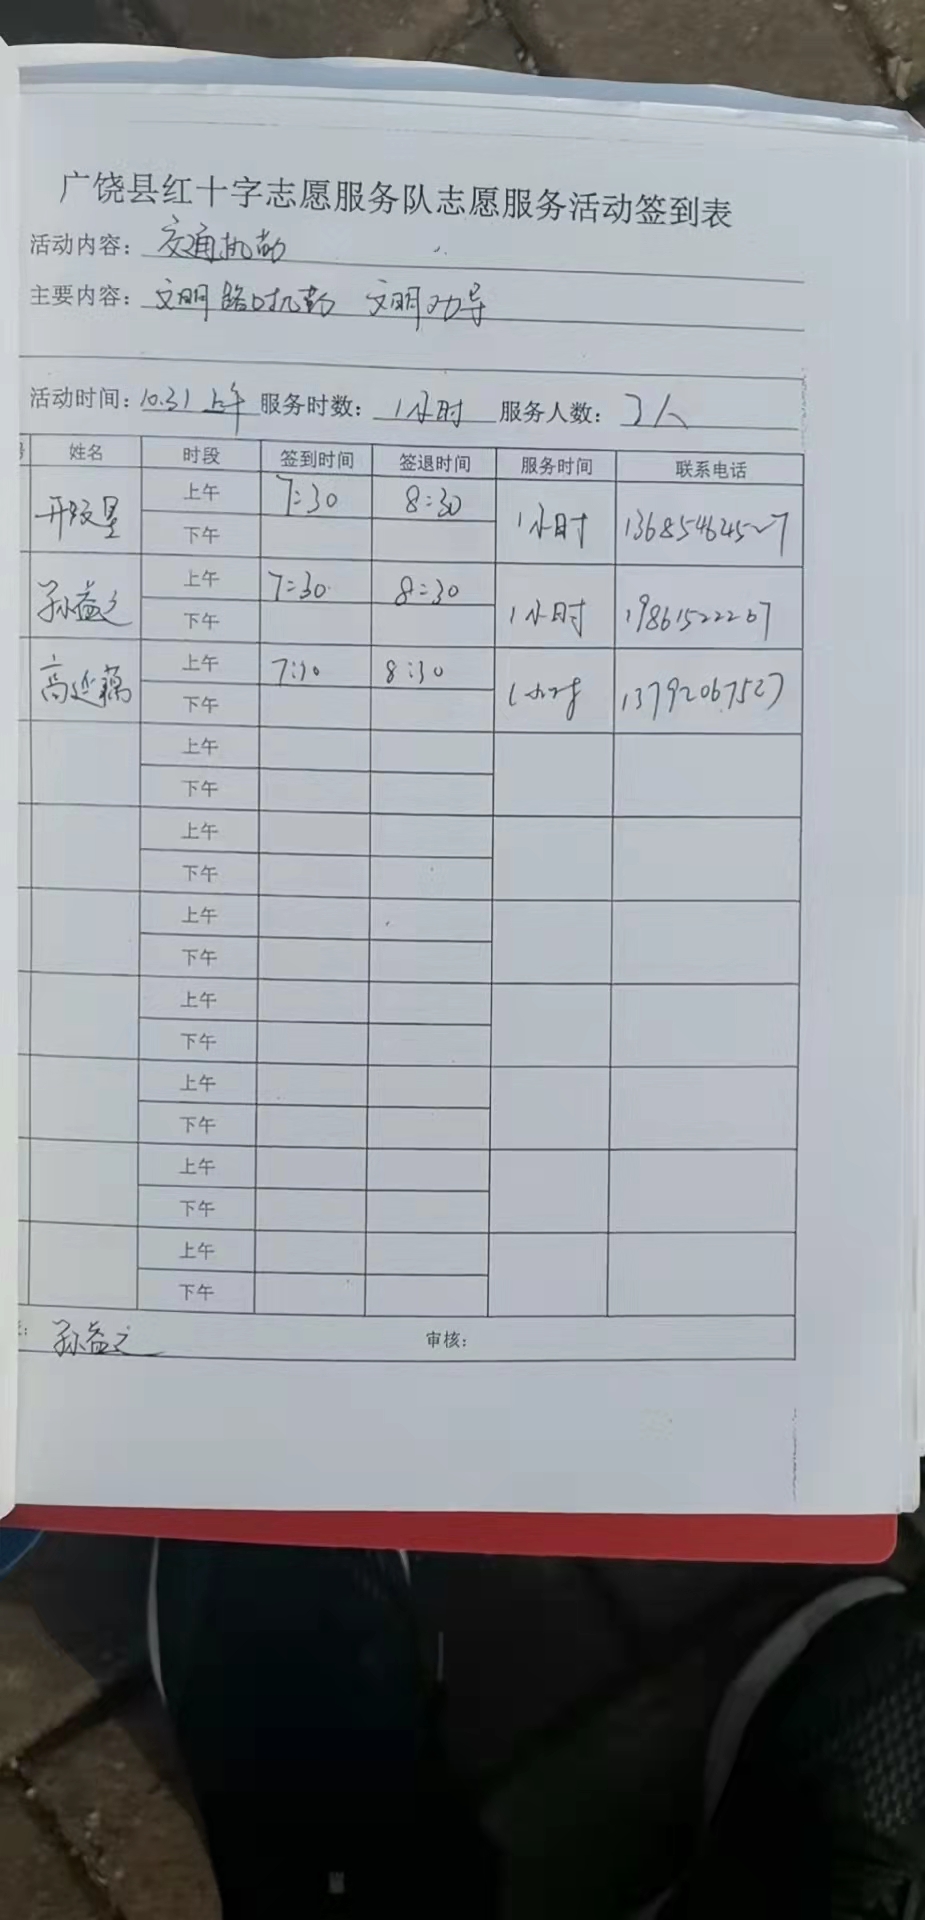 广饶县红十字志愿服务队志愿服务活动签到表
活动内容：交通执勤
主要内容：文明路口执勤 文明劝导
活动时间：10.31上午 服务时数：1小时 服务人数：3人
姓名 时段 签到时间 签退时间 服务时间 联系电话
上午 7:30 8:30
1小时
下午
孙益之 上午 7:30 8:30
1小时 19861522267
下午
高延藕 上午 7:30 8:30
1小时 13792067527
下午
上午
下午
上午
下午
上午
下午
上午
下午
上午
下午
上午
下午
上午
下午
孙益之 审核：